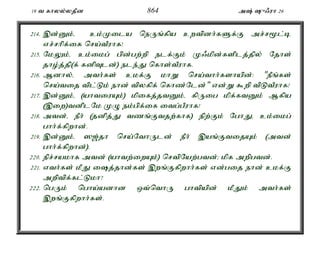 19 வ காலல்லதீன 864 அஷ் ஷுஃரா 26
214. இன்னும், உம்முடைய நெருங்கிய உறவினர்களுக்கு அச்சமூட்டி
எச்சரிக்கை செய்வீராக!
215. மேலும், உம்மைப் பின்பற்றி நடக்கும் முஃமின்களிடத்தில் தோள்
தாழ்த்தி(க் கனிவுடன்) நடந்து கொள்வீராக.
216. ஆனால், அவர்கள் உமக்கு மாறு செய்வார்களாயின்: "நீங்கள்
செய்வதை விட்டும் நான் விலகிக் கொண்டேன்" என்று கூறி விடுவீராக!
217. இன்னும், (யாவரையும்) மிகைத்தவனும், கிருபை மிக்கவனும் ஆகிய
(இறை)வனிடமே முழு நம்பிக்கை வைப்பீராக!
218. அவன், நீர் (தனித்து வணங்குவதற்காக) நிற்கும் போது, உம்மைப்
பார்க்கிறான்.
219. இன்னும், ஸஜ்தா செய்வோருடன் நீர் இயங்குவதையும் (அவன்
பார்க்கிறான்).
220. நிச்சயமாக அவன் (யாவற்றையும்) செவியேற்பவன்; மிக அறிபவன்.
221. எவர்கள் மீது ஷைத்தான்கள் இறங்குகிறார்கள் என்பதை நான் உமக்கு
அறிவிக்கட்டுமா?
222. பெரும் பொய்யனான ஒவ்வொரு பாவியின் மீதும் அவர்கள்
இறங்குகிறார்கள்.